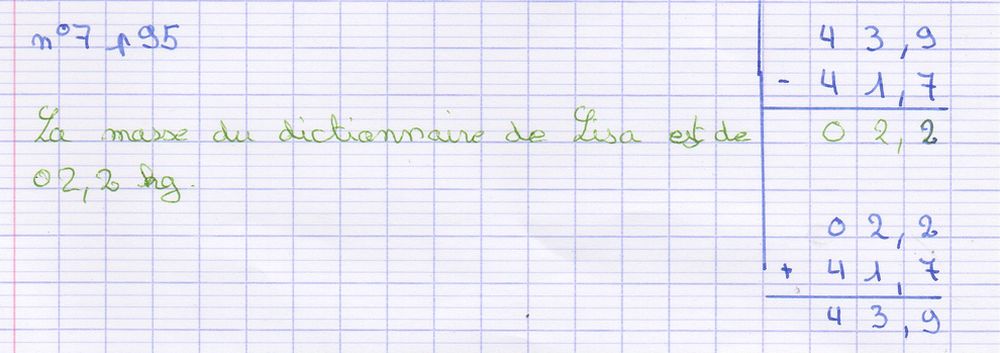 n°7 p95
La masse du dictionnaire de Lisa est de
02,2 kg.
43,9
- 41,7
02,2
02,2
+ 41,7
43,9